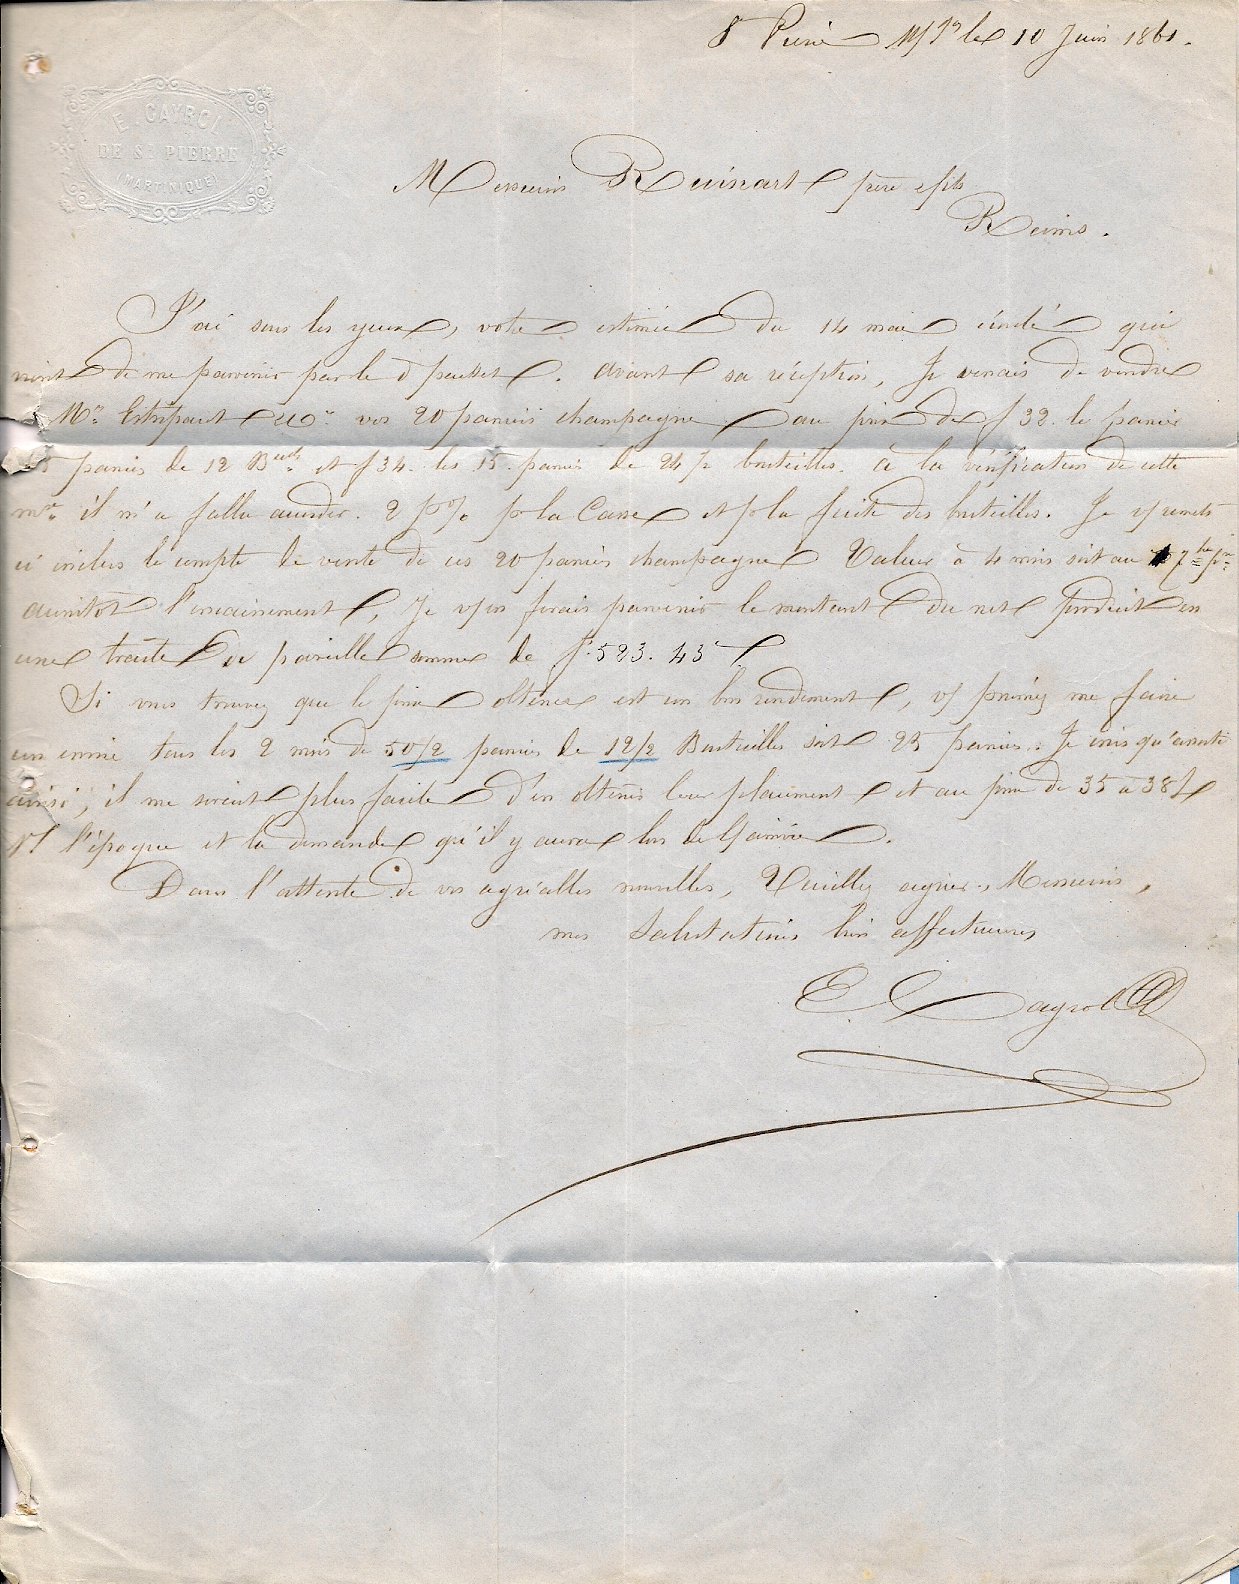 St Pierre M/que le 10 Juin 1861.
E. CAYROL
DE ST PIERRE
(MARTINIQUE)
Messieurs Ruinart père & fils
Reims.
J'ai sous les yeux, votre estimée du 14 mai écoulé qui
vient de me parvenir par le dr paquet. Avant sa réception, Je venais de vendre
Mrs & Cie vos 20 paniers champagne au prix de f 32. le panier
les 5 paniers de 12 Beilles et f 34. les 15. paniers de 24/2 bouteilles. à la vérification de cette
mse il m'a fallu accorder. 2 p% p la Casse et p la fuite des bouteilles. Je v/ remets
ci inclus le compte de vente de ces 20 paniers champagne Valeur à 4 mois soit au 7 bre pn
aussitôt l'encaissement, Je v/en ferais parvenir le montant du net produit en
une traite de pareille somme de f. 523. 43
Si vous trouvez que le prix obtenu est un bon rendement, v/ pourrez me faire
un envoi tous les 2 mois de 50/2 paniers de 12/2 Bouteilles soit 25 paniers. Je crois qu'
ainsi, il me serait plus facile d'en obtenir leur placement et au prix de 35 à 38 f
st l'époque et la demande qu'il y aura lors de l'arrivée.
Dans l'attente de vos agréables nouvelles, Veuillez agréer, Messieurs,
mes salutations bien affectueuses
E. Cayrol